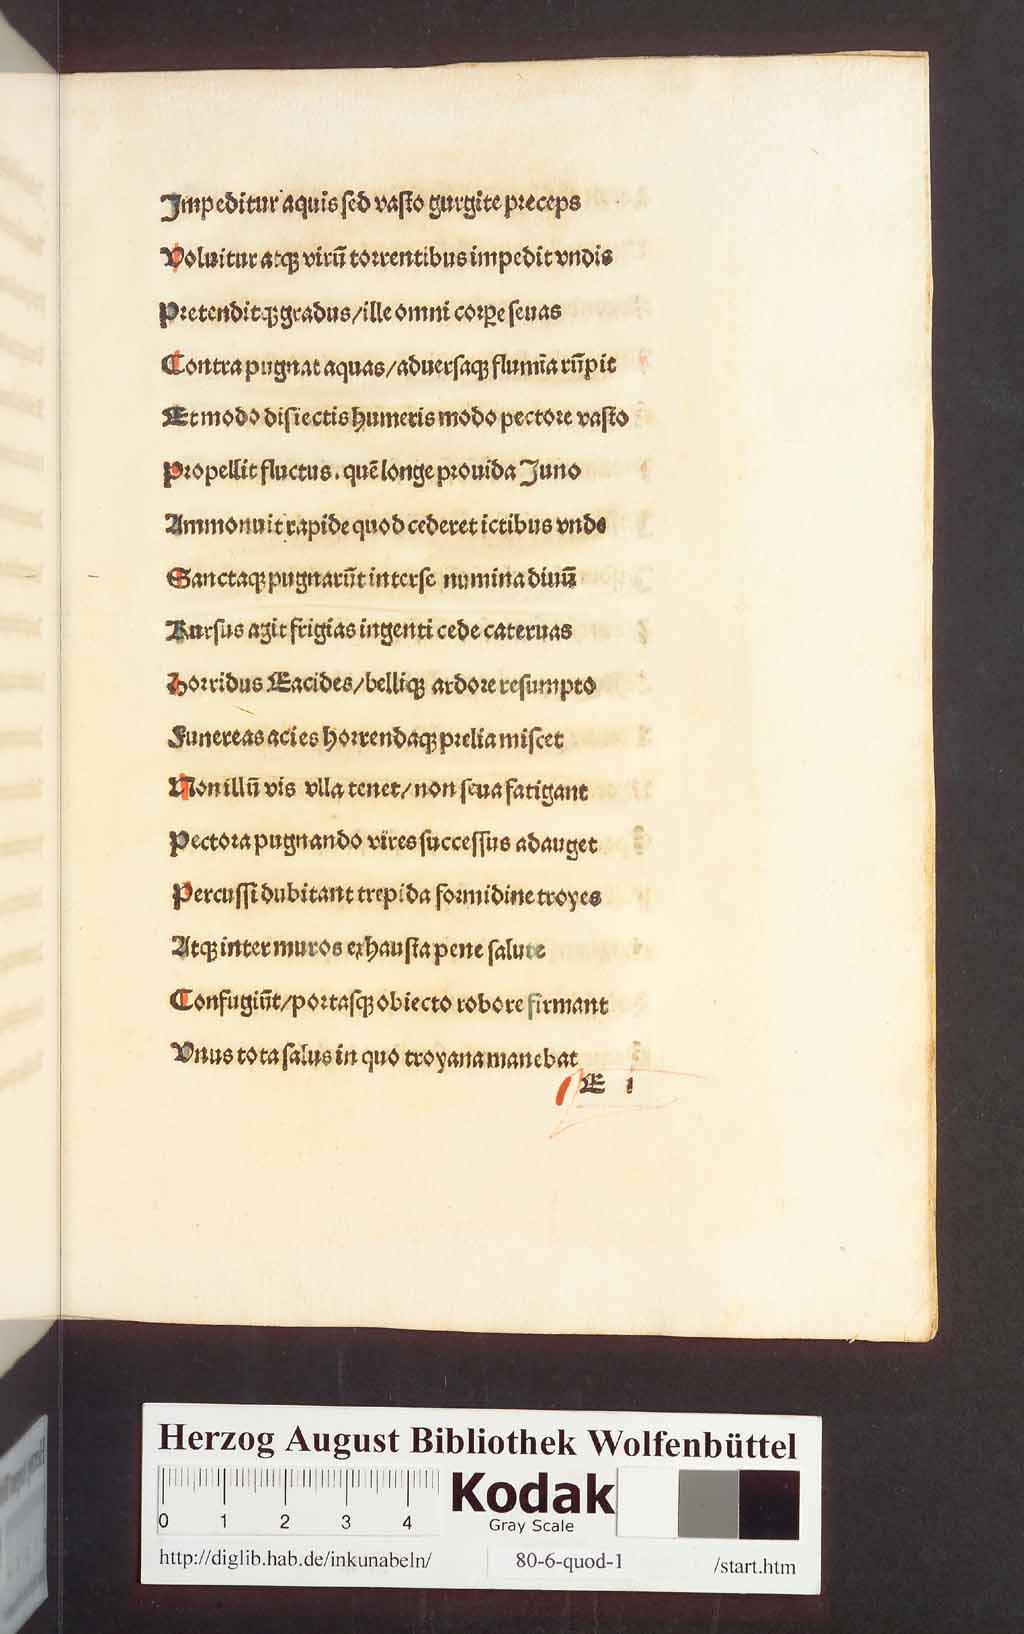 Impeditur aquis sed vasto gurgite preceps
Voluitur atqꝫ virū torrentibus impedit vndis
Pretenditqꝫ gradus/ille omni corꝑe seuas
Contra pugnat aquas/aduersaqꝫ flumīa rūpit
Et modo disiectis humeris modo pectore vasto
Propellit fluctus. quē longe prouida Juno
Ammonuit rapide quod cederet ictibus vnde
Sanctaqꝫ pugnarūt inter se numina diuū
Rursus agit frigias ingenti cede cateruas
Horridus Eacides/belliqꝫ ardore resumpto
Funereas acies horrendaqꝫ prelia miscet
Non illū vis vlla tenet/non seua fatigant
Pectora pugnando vires successus adauget
Percussi dubitant trepida formidine troyes
Atqꝫ inter muros exhausta pene salute
Confugiūt/portasqꝫ obiecto robore firmant
Vnus tota salus in quo troyana manebat
E i
Herzog August Bibliothek Wolfenbüttel
0 1 2 3 4
Kodak
Gray Scale
http://diglib.hab.de/inkunabeln/ 80-6-quod-1 /start.htm